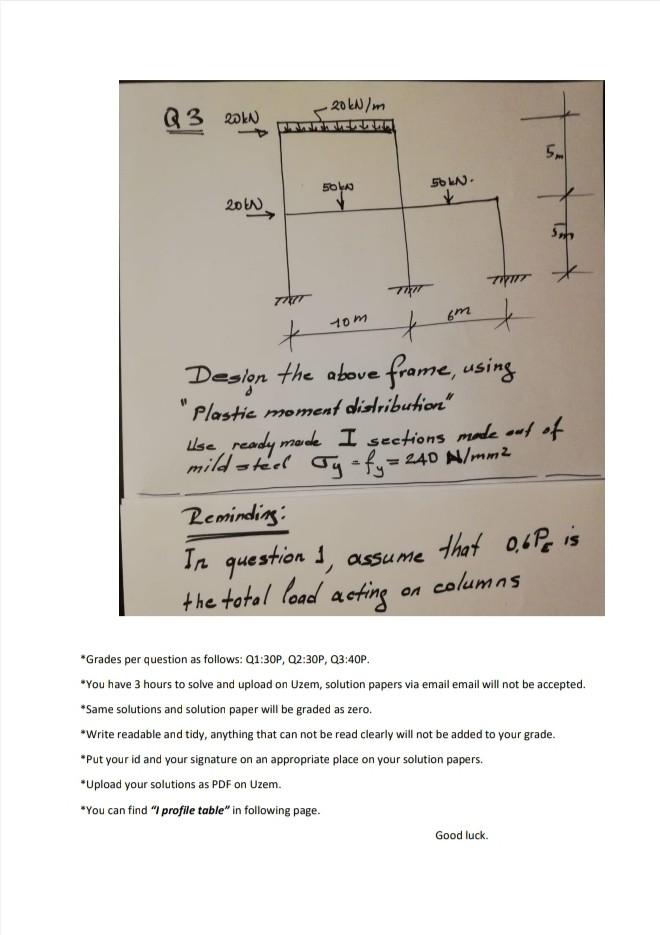 Q3 20kN 20kN/m
5m
50kN 50kN.
20kN
5m
10m 6m
Design the above frame, using
"Plastic moment distribution"
Use ready made I sections made out of
mild steel σy = fy = 240 N/mm2
Reminding:
In question 1, assume that 0,6PE is
the total load acting on columns
*Grades per question as follows: Q1:30P, Q2:30P, Q3:40P.
*You have 3 hours to solve and upload on Uzem, solution papers via email email will not be accepted.
*Same solutions and solution paper will be graded as zero.
*Write readable and tidy, anything that can not be read clearly will not be added to your grade.
*Put your id and your signature on an appropriate place on your solution papers.
*Upload your solutions as PDF on Uzem.
*You can find "I profile table" in following page.
Good luck.